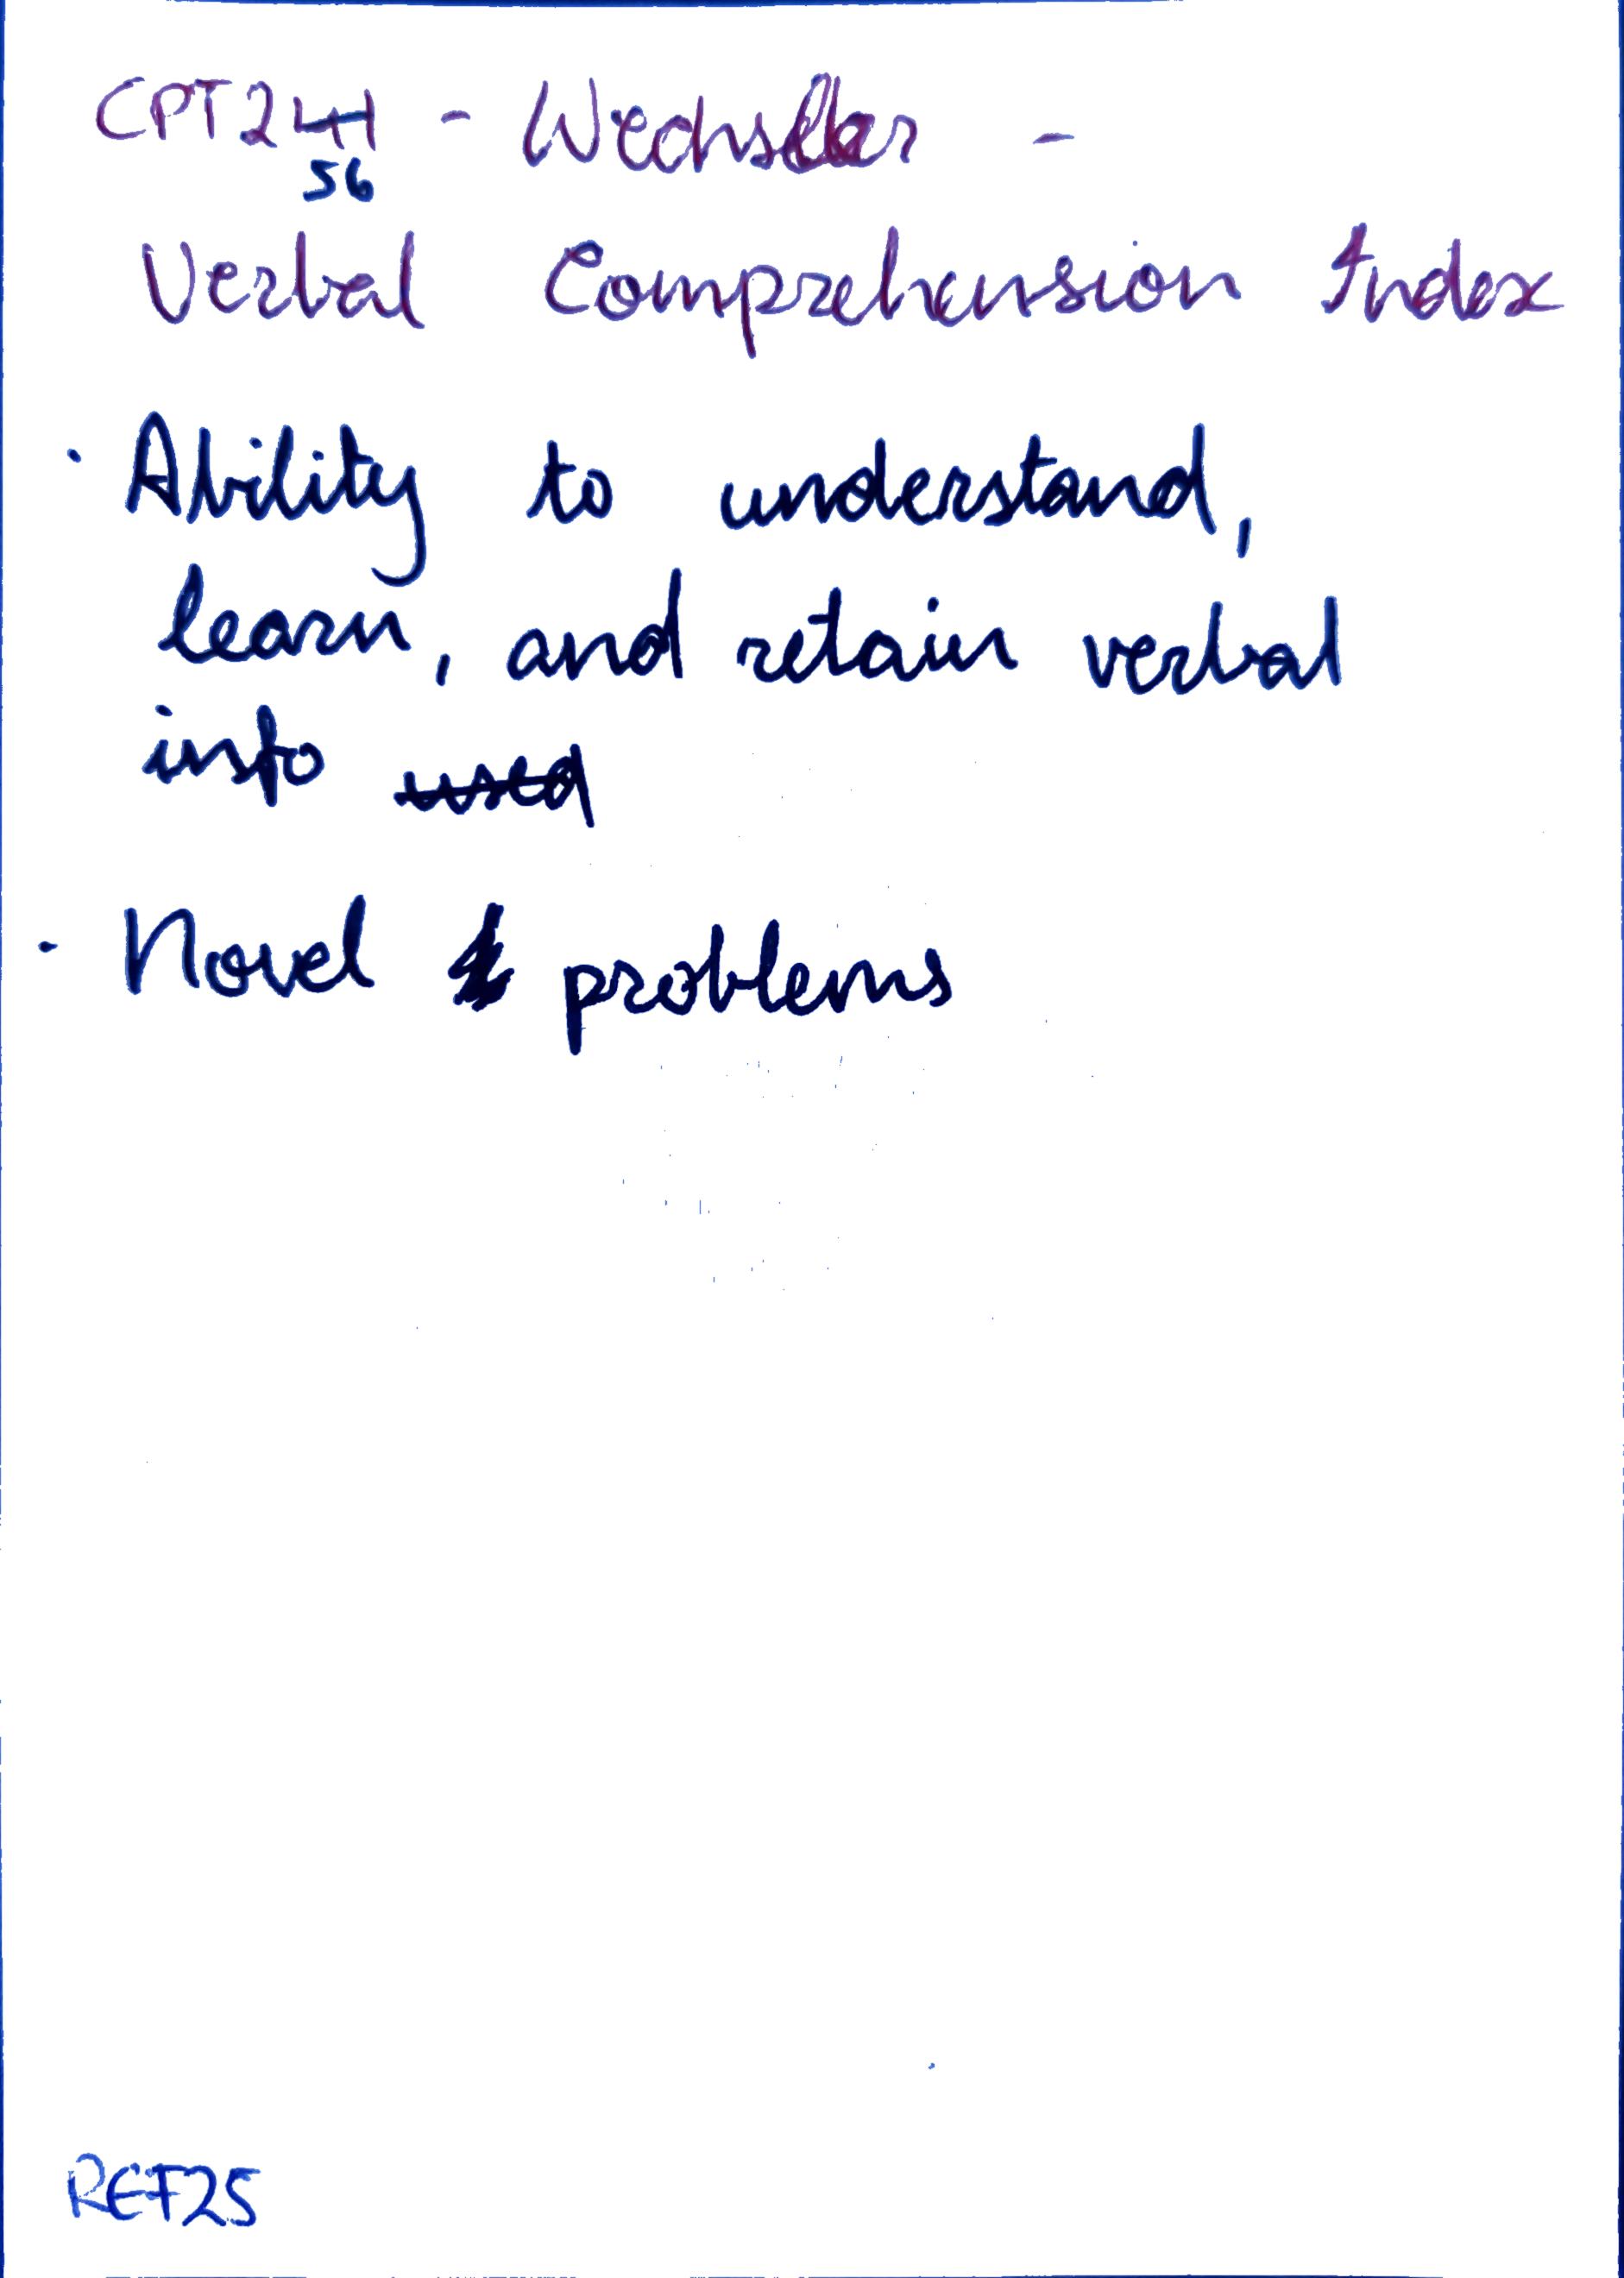 CPT241 - Wechsler -
56
Verbal Comprehension Index
· Ability to understand,
learn, and retain verbal
info used
· Novel problems
REF25